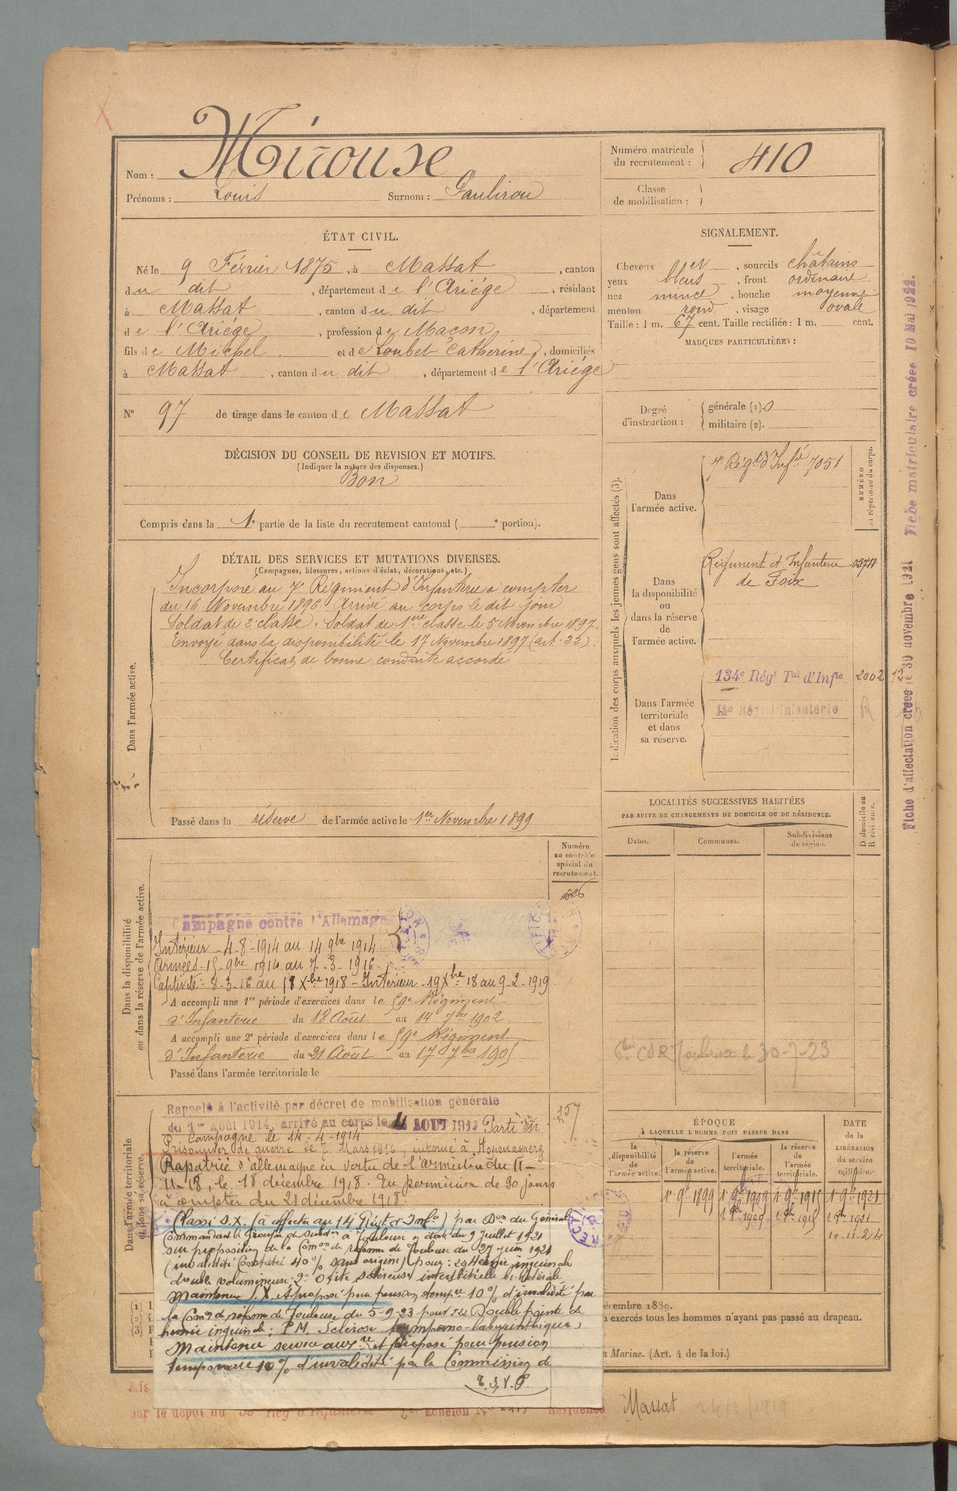 Nom : Mirouse
Prénoms : Louis Surnom : Paulirou
Numéro matricule du recrutement : 410
Classe de mobilisation :
ÉTAT CIVIL.
Né le 9 Février 1875, à Massat, canton
du dit, département de l'Ariège, résidant
à Massat, canton du dit, département
de l'Ariège, profession de Maçon,
fils de Michel et de Loubet Catherine, domiciliés
à Massat, canton du dit, département de l'Ariège
N° 97 de tirage dans le canton de Massat
SIGNALEMENT.
Cheveux et, sourcils châtains
yeux bleus, front ordinaire
nez mince, bouche moyenne
menton rond, visage ovale
Taille : 1 m. 67 cent. Taille rectifiée : 1 m. cent.
MARQUES PARTICULIÈRES :
Degré d'instruction : générale (1) 0
militaire (2).
DÉCISION DU CONSEIL DE REVISION ET MOTIFS.
(Indiquer la nature des dispenses.)
Bon
Compris dans la 1e partie de la liste du recrutement cantonal ( e portion).
DÉTAIL DES SERVICES ET MUTATIONS DIVERSES.
(Campagnes, blessures, actions d'éclat, décorations, etc.)
Dans l'armée active.
Incorporé au 7e Régiment d'Infanterie à compter
du 16 Novembre 1896 Arrivé au corps le dit jour
Soldat de 2e classe. Soldat de 1ère classe le 5 Novembre 1897.
Envoyé dans la disponibilité le 17 Novembre 1897 (art. 23).
Certificat de bonne conduite accordé
Passé dans la réserve de l'armée active le 1er Novembre 1899
Indication des corps auxquels les jeunes gens sont affectés (3).
NUMÉRO au répertoire du corps.
Dans l'armée active.
7e Régt d'Infie 7051
Dans la disponibilité ou dans la réserve de l'armée active.
Régiment d'Infanterie
de Foix
Dans l'armée territoriale et dans sa réserve.
134e Régt Tal d'Infie 2002
LOCALITÉS SUCCESSIVES HABITÉES
PAR SUITE DE CHANGEMENTS DE DOMICILE OU DE RÉSIDENCE.
Dates. Communes. Subdivisions de région. D domicile ou R résidence.
Fiche d'affectation créée le 30 novembre 1921
Fiche matriculaire créée 10 Mai 1922.
Numéro au contrôle spécial du recrutement.
Dans la disponibilité ou dans la réserve de l'armée active.
Campagne contre l'Allemagne
Intérieur - 4-8-1914 au 14 9bre 1914
Armées - 15 9bre 1914 au 7-3-1916
Captivité - 8-3-16 au 18 Xbre 1918 - Intérieur - 19 Xbre 18 au 9-2-1919
A accompli une 1re période d'exercices dans le 59e Régiment
d'Infanterie du 18 Août au 14 7bre 1902
A accompli une 2e période d'exercices dans le 59e Régiment
d'Infanterie du 21 Août au 17 7bre 1905
Passé dans l'armée territoriale le
30-7-23
Dans l'armée territoriale et dans sa réserve.
Rappelé à l'activité par décret de mobilisation générale
du 1er Août 1914, arrivé au corps le 4 AOUT 1914 Parti en
campagne le 14-4-1914
Prisonnier de guerre le 7 Mars 1916, interné à
Rapatrié d'allemagne en vertu de l'armistice du 11-
11-18, le 18 décembre 1918. En permission de 30 jours
à compter du 21 décembre 1918.
257
Classé S.X. (à affecter au 14 Régt d'Infie) par Don du Général
commandant le Groupe de Subdon à Toulouse en date du 9 juillet 1921
sur proposition de la Comon de réforme de Toulouse du 27 juin 1921
(invalidité constatée 40% sans origine) pour : 1° Hernie inguinale
double volumineuse ; 2° Otite scléreuse interstitielle bi-latérale
Maintenu S.X. et proposé pour pension tempre 10% d'invalidité par
la Comon de réforme de Toulouse du 5-9-23 pour : Double pointe de
hernie inguinale ; P.M. Sclérose tympano-labyrinthique ;
Maintenu service auxre et proposé pour pension
temporaire 10% d'invalidité par la Commission de
T.S.V.P.
ÉPOQUE
À LAQUELLE L'HOMME DOIT PASSER DANS
la disponibilité de l'armée active. la réserve de l'armée active. l'armée territoriale. la réserve de l'armée territoriale.
DATE de la LIBÉRATION du service militaire.
1er 9bre 1899 1er 9bre 1909 1er 9bre 1915 1er 9bre 1921
10-11-24
décembre 1889.
exercés tous les hommes n'ayant pas passé au drapeau.
Marine. (Art. 4 de la loi.)
par le dépôt du 59e Rég d'Infanterie Échelon N° Résidence Massat